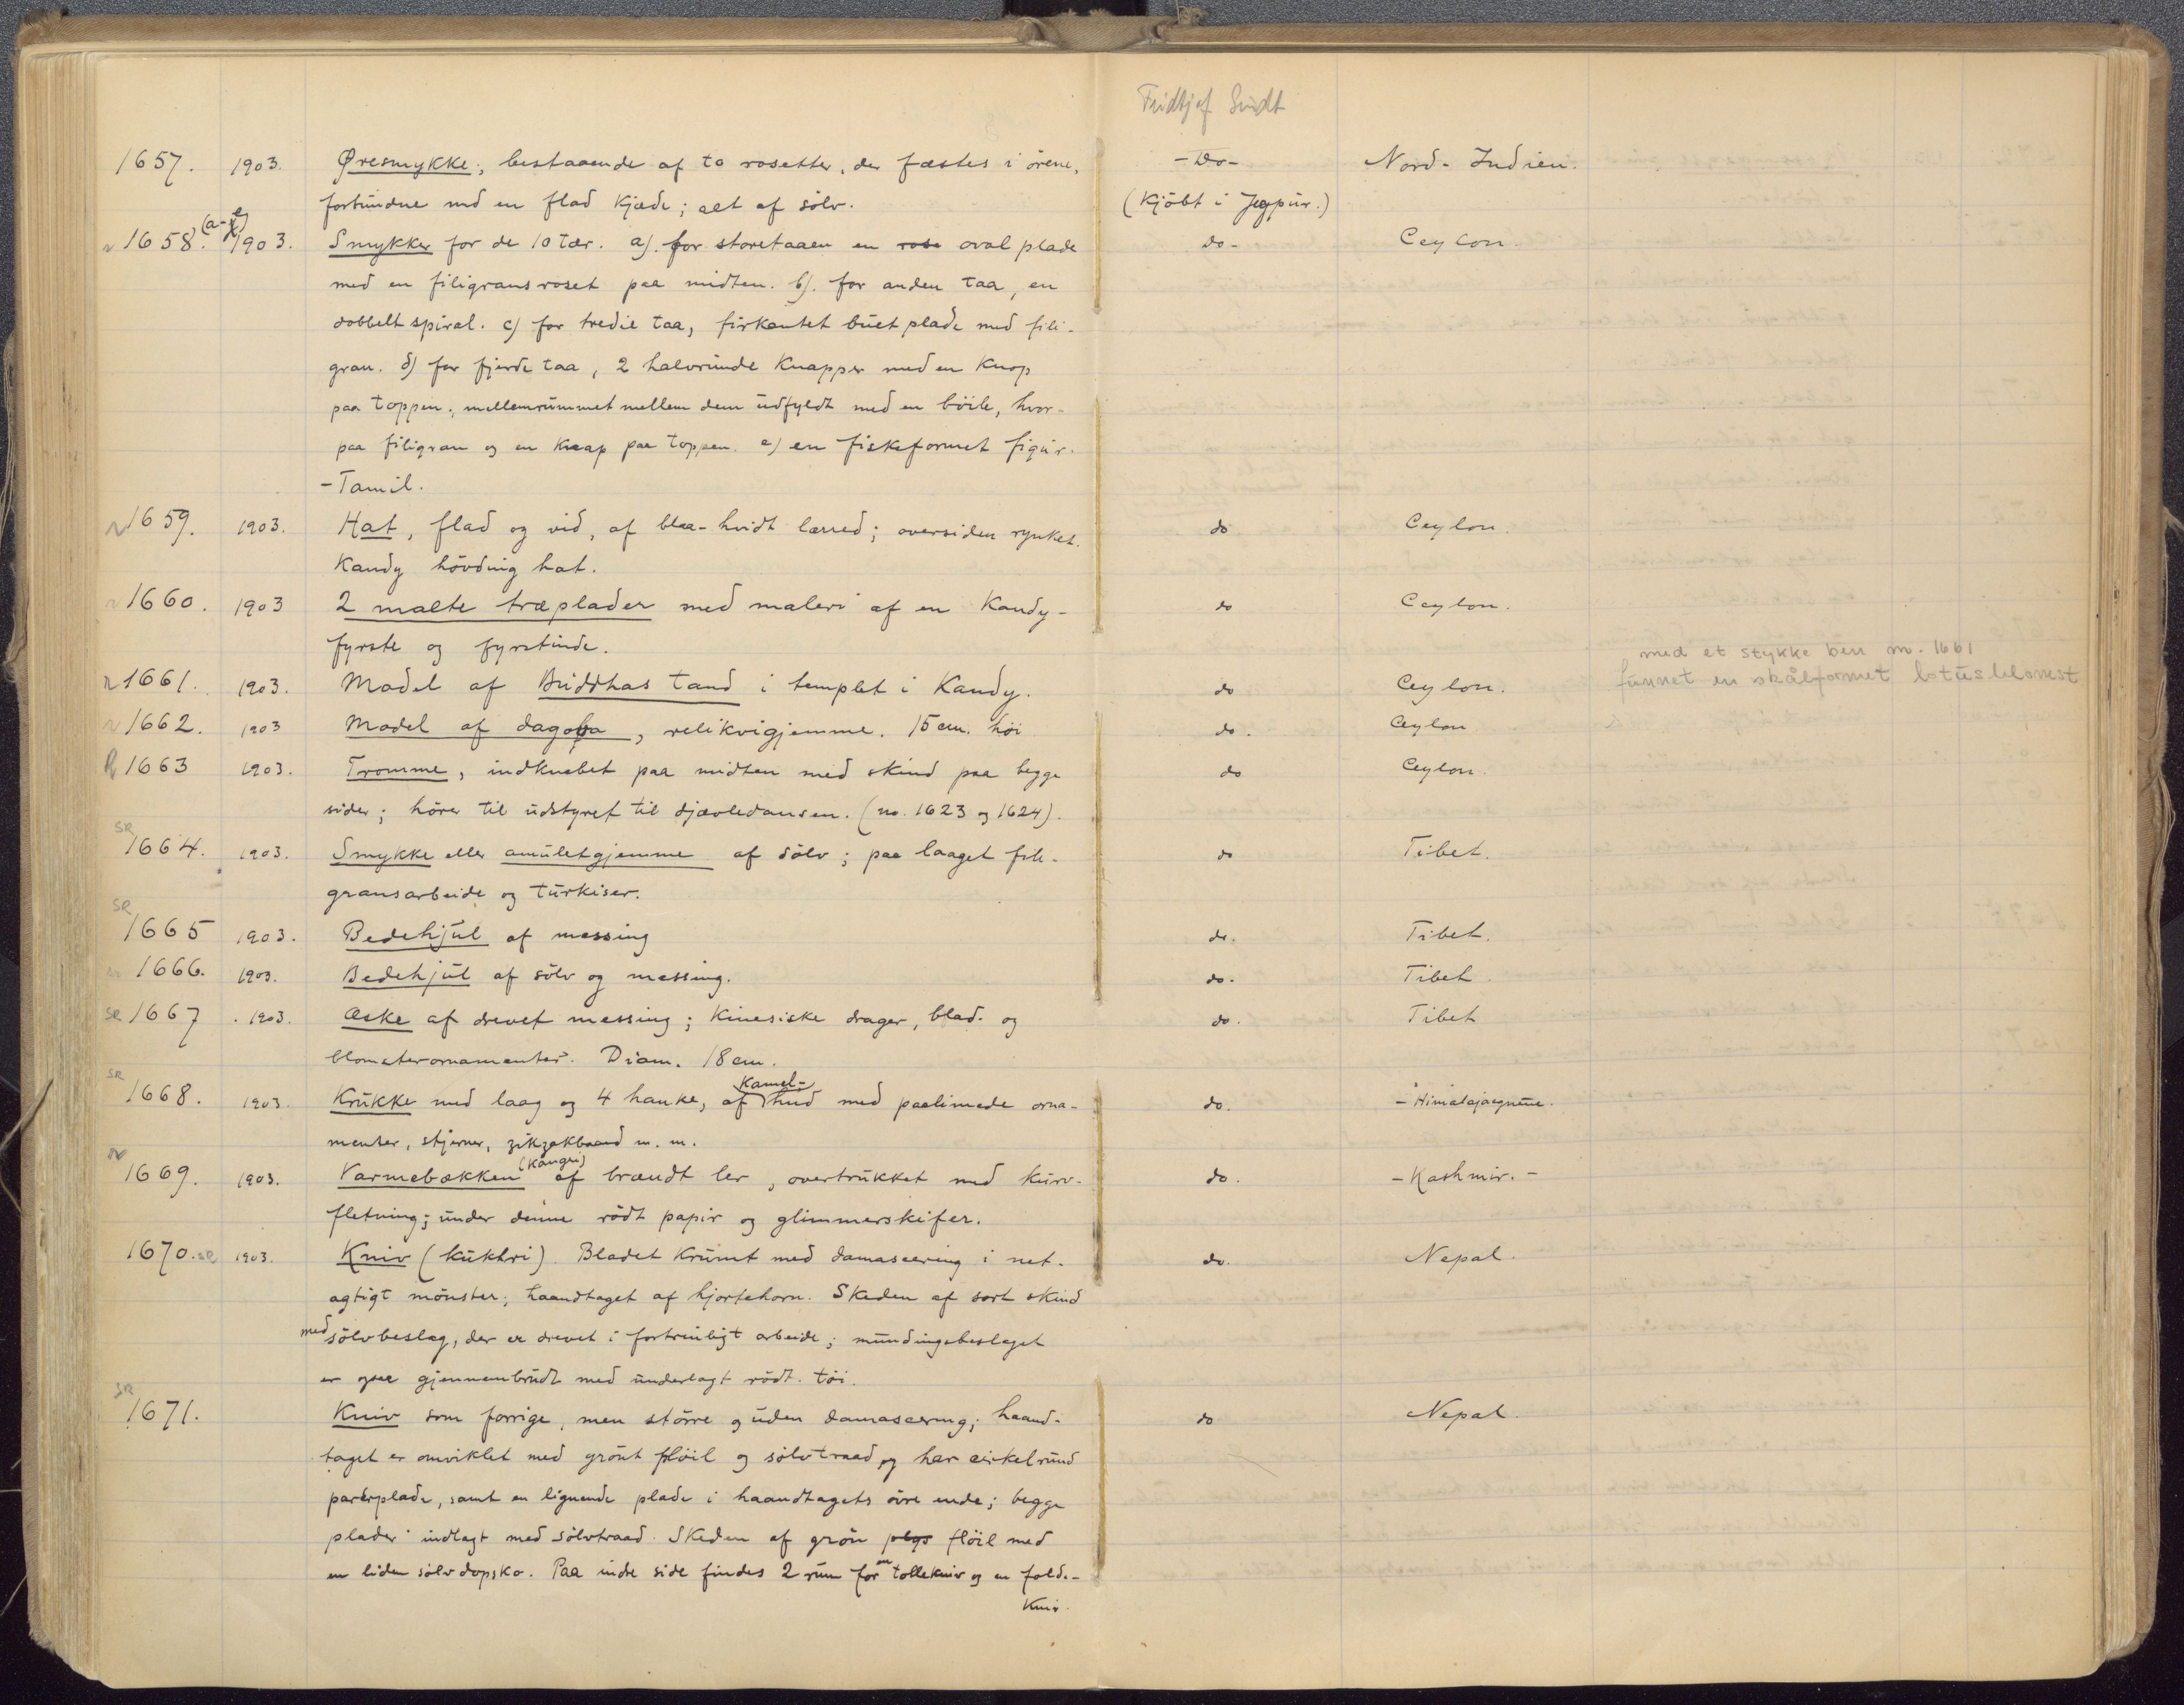 Fridtjof Sundt
1657. 1903. Øresmykke; bestaaende af to rosetter, der fæstes i örene, -Do- Nord-Indien.
forbundne med en flad Kjæde; alt af sölv. (Kjöbt i Jeypur.)
1658. (a-e) 1903. Smykker for de 10 tær. a). for storetaaen en rose oval plade do- Ceylon.
med en filigransroset paa midten. b). for anden taa, en
dobbelt spiral. c) for tredie taa, firkantet buet plade med fili-
gran. d) for fjerde taa, 2 halvrunde Knapper med en Knop
paa toppen; mellemrummet mellem dem udfyldt med en böile, hvor-
paa filigran og en Knap paa toppen. e) en fiskeformet figur.
-Tamil.
1659. 1903. Hat, flad og vid, af blaa-hvidt lærred; oversiden rynket. do Ceylon.
Kandy hövding hat.
1660. 1903 2 malte træplader med maleri af en Kandy- do Ceylon.
fyrste og fyrstinde.
med et stykke ben m. 1661
1661. 1903. Model af Buddhas tand i templet i Kandy. do Ceylon. funnet en skålformet lotusblomst
1662. 1903 Model af dagoba, relikvigjemme. 15 cm. höi do. Ceylon
1663 1903. Tromme, indknebet paa midten med skind paa begge do Ceylon.
sider; hörer til udstyret til djævledansen. (no. 1623 og 1624).
SR
1664. 1903. Smykke eller amuletgjemme af sölv; paa laaget fili- do Tibet.
gransarbeide og turkiser.
SR
1665 1903. Bedehjul af messing do. Tibet.
1666. 1903. Bedehjul af sölv og messing. do. Tibet.
SR 1667 1903. Æske af drevet messing; Kinesiske drager, blad- og do. Tibet
blomsterornamenter. Diam. 18 cm.
SR
1668. 1903. Krukke med laag og 4 hanke, af Kamel-hud med paalimede orna- do. -Himalajaegnene.
menter, stjerner, zikzakbaand m. m.
1669. 1903. Varmebækken (Kangri) af brændt ler, overtrukket med kurv- do. -Kashmir.-
fletning; under denne rödt papir og glimmerskifer.
1670. SR 1903. Kniv (kukhri). Bladet Krumt med damascering i net- do. Nepal.
agtigt mönster; haandtaget af hjortehorn. Skeden af sort skind
med sölvbeslag, der er drevet i fortrinligt arbeide; mundingsbeslaget
er ogsaa gjennembrudt med underlagt rödt töi.
SR
1671. Kniv som forrige, men större og uden damascering; haand- do Nepal.
taget er omviklet med grönt flöil og sölvtraad og har cirkelrund
parérplade, samt en lignende plade i haandtagets övre ende; begge
plader indlagt med sölvtraad. Skeden af grön plys flöil med
en liden sölvdopsko. Paa indre side findes 2 rum for en tollekniv og en folde-
Kniv.